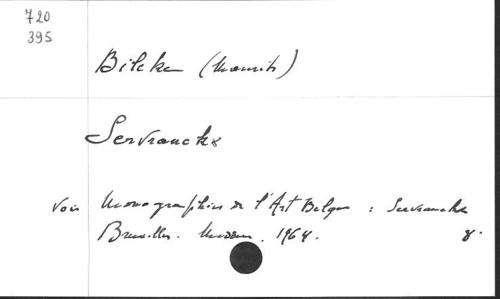 720
395
Bilcke (Maurits)
Servranckx
Voir Monographies de l'Art Belge : Servranckx
Bruxelles. 1964. 8°